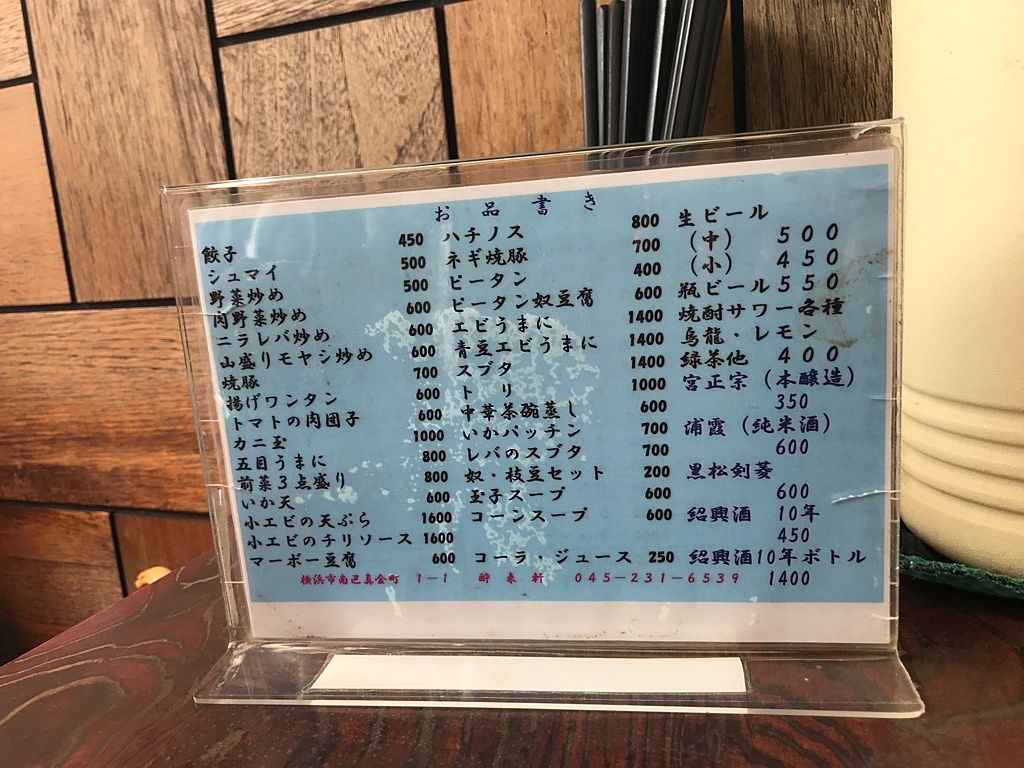 お品書き
餃子 450
シュマイ 500
野菜炒め 500
肉野菜炒め 600
ニラレバ炒め 600
山盛りモヤシ炒め 600
焼豚 700
揚げワンタン 600
トマトの肉団子 600
カニ玉 1000
五目うまに 800
前菜3点盛り 800
いか天 600
小エビの天ぷら 1600
小エビのチリソース 1600
マーボー豆腐 600
ハチノス 800
ネギ焼豚 700
ピータン 400
ピータン奴豆腐 600
エビうまに 1400
青豆エビうまに 1400
スブタ 1400
トリ 1000
中華茶碗蒸し 600
いかパッチン 700
レバのスブタ 700
奴・枝豆セット 200
玉子スープ 600
コーンスープ 600
コーラ・ジュース 250
生ビール
（中） 500
（小） 450
瓶ビール 550
焼酎サワー各種
烏龍・レモン
緑茶他 400
宮正宗（本醸造）
350
浦霞（純米酒）
600
黒松剣菱
600
紹興酒 10年
450
紹興酒10年ボトル
1400
横浜市南区真金町 1-1 酔来軒 045-231-6539